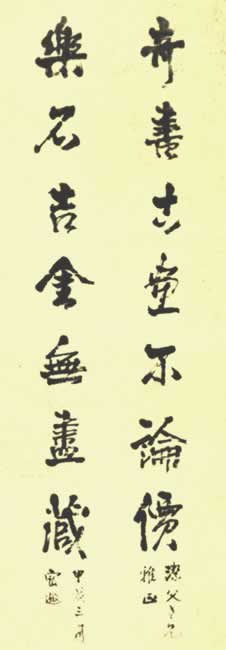 奇書古畫不論價
雅正
樂石吉金無盡藏
甲戌三月